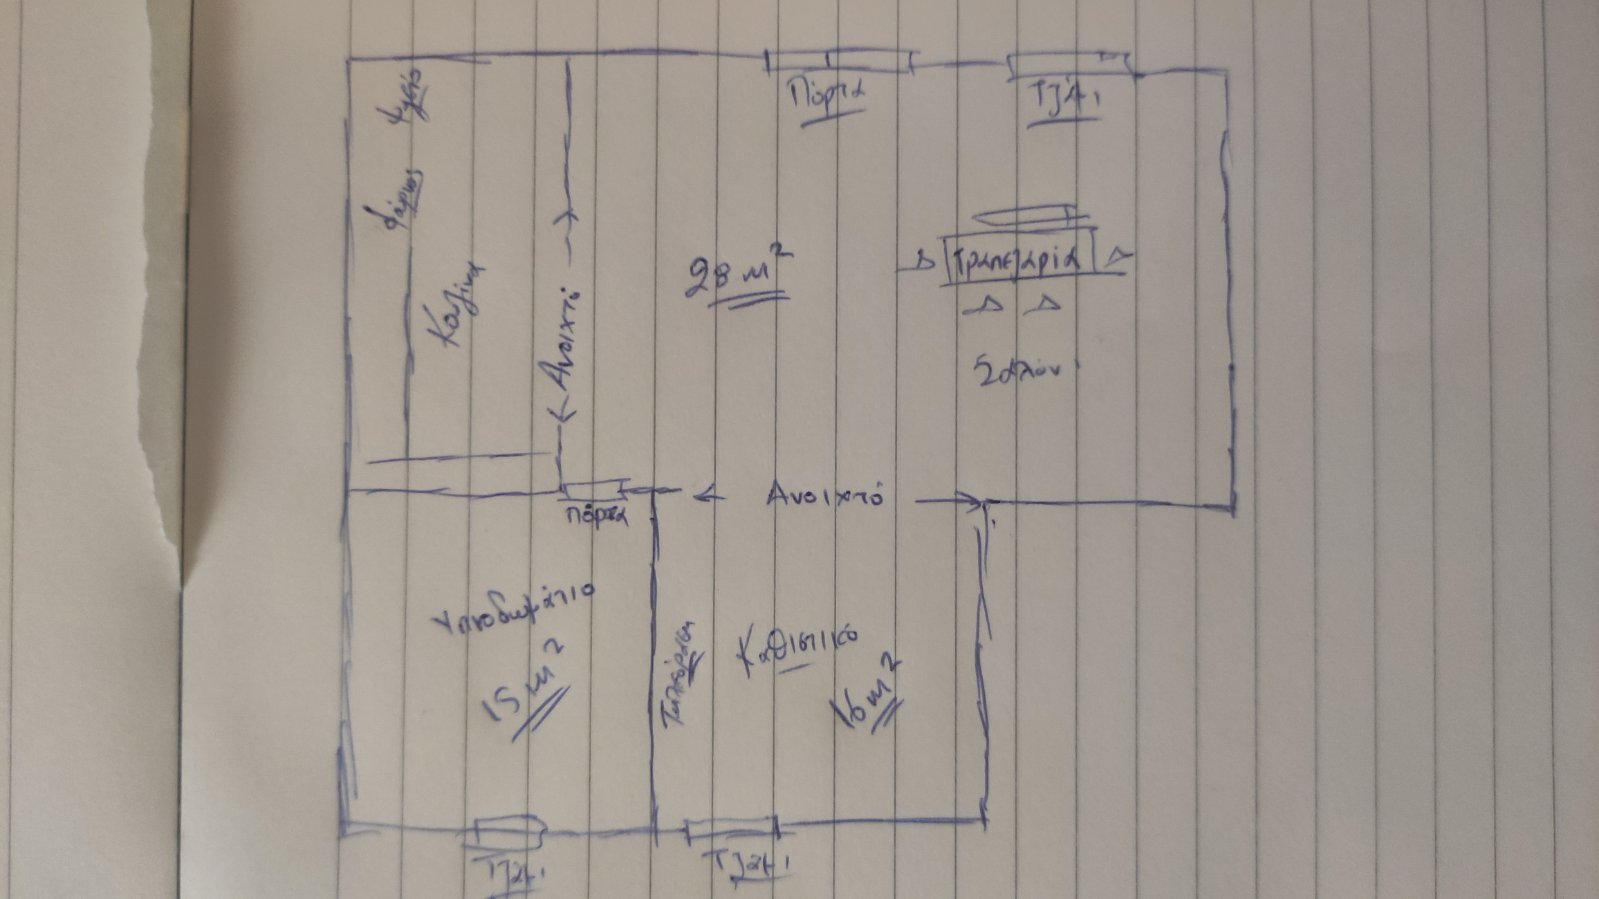 Πόρτα
Τζάμι
Ψυγείο
Φούρνος
Κουζίνα
Ανοιχτό
28 м²
Τραπεζαρία
Σαλόνι
Ανοιχτό
Πόρτα
Υπνοδωμάτιο
15 м²
Καθιστικό
16 м²
Τζάμι
Τζάμι